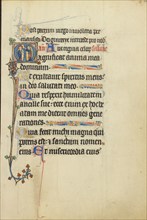 post partum virgo inviolata per
mansisti. Dei genitrix intercede pro
nobis. A
Magnificat anima mea
dominum.
Et exultavit spiritus meus
in deo salutari meo.
Quia respexit humilitatem
ancille sue ecce enim ex hoc
beatam me dicent omnes gene
rationes.
Quia fecit michi magna qui
potens est et sanctum nomen
eius. Et misericordia eius